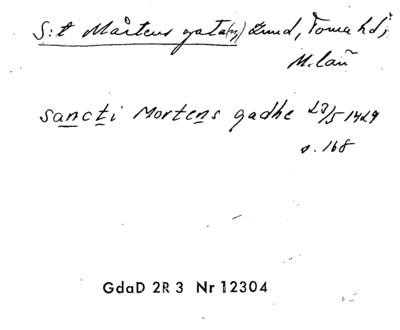 S:t Mårtens gata(n), Lund, Torna hd,
M.län
sancti Mortens gadhe 23/5 1429
s. 168
GdaD 2R 3 Nr 12304